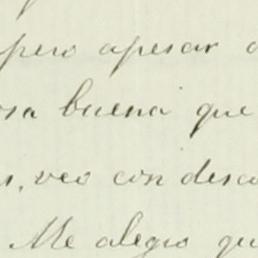 pero apesar
buena que
veo con
Me alegro